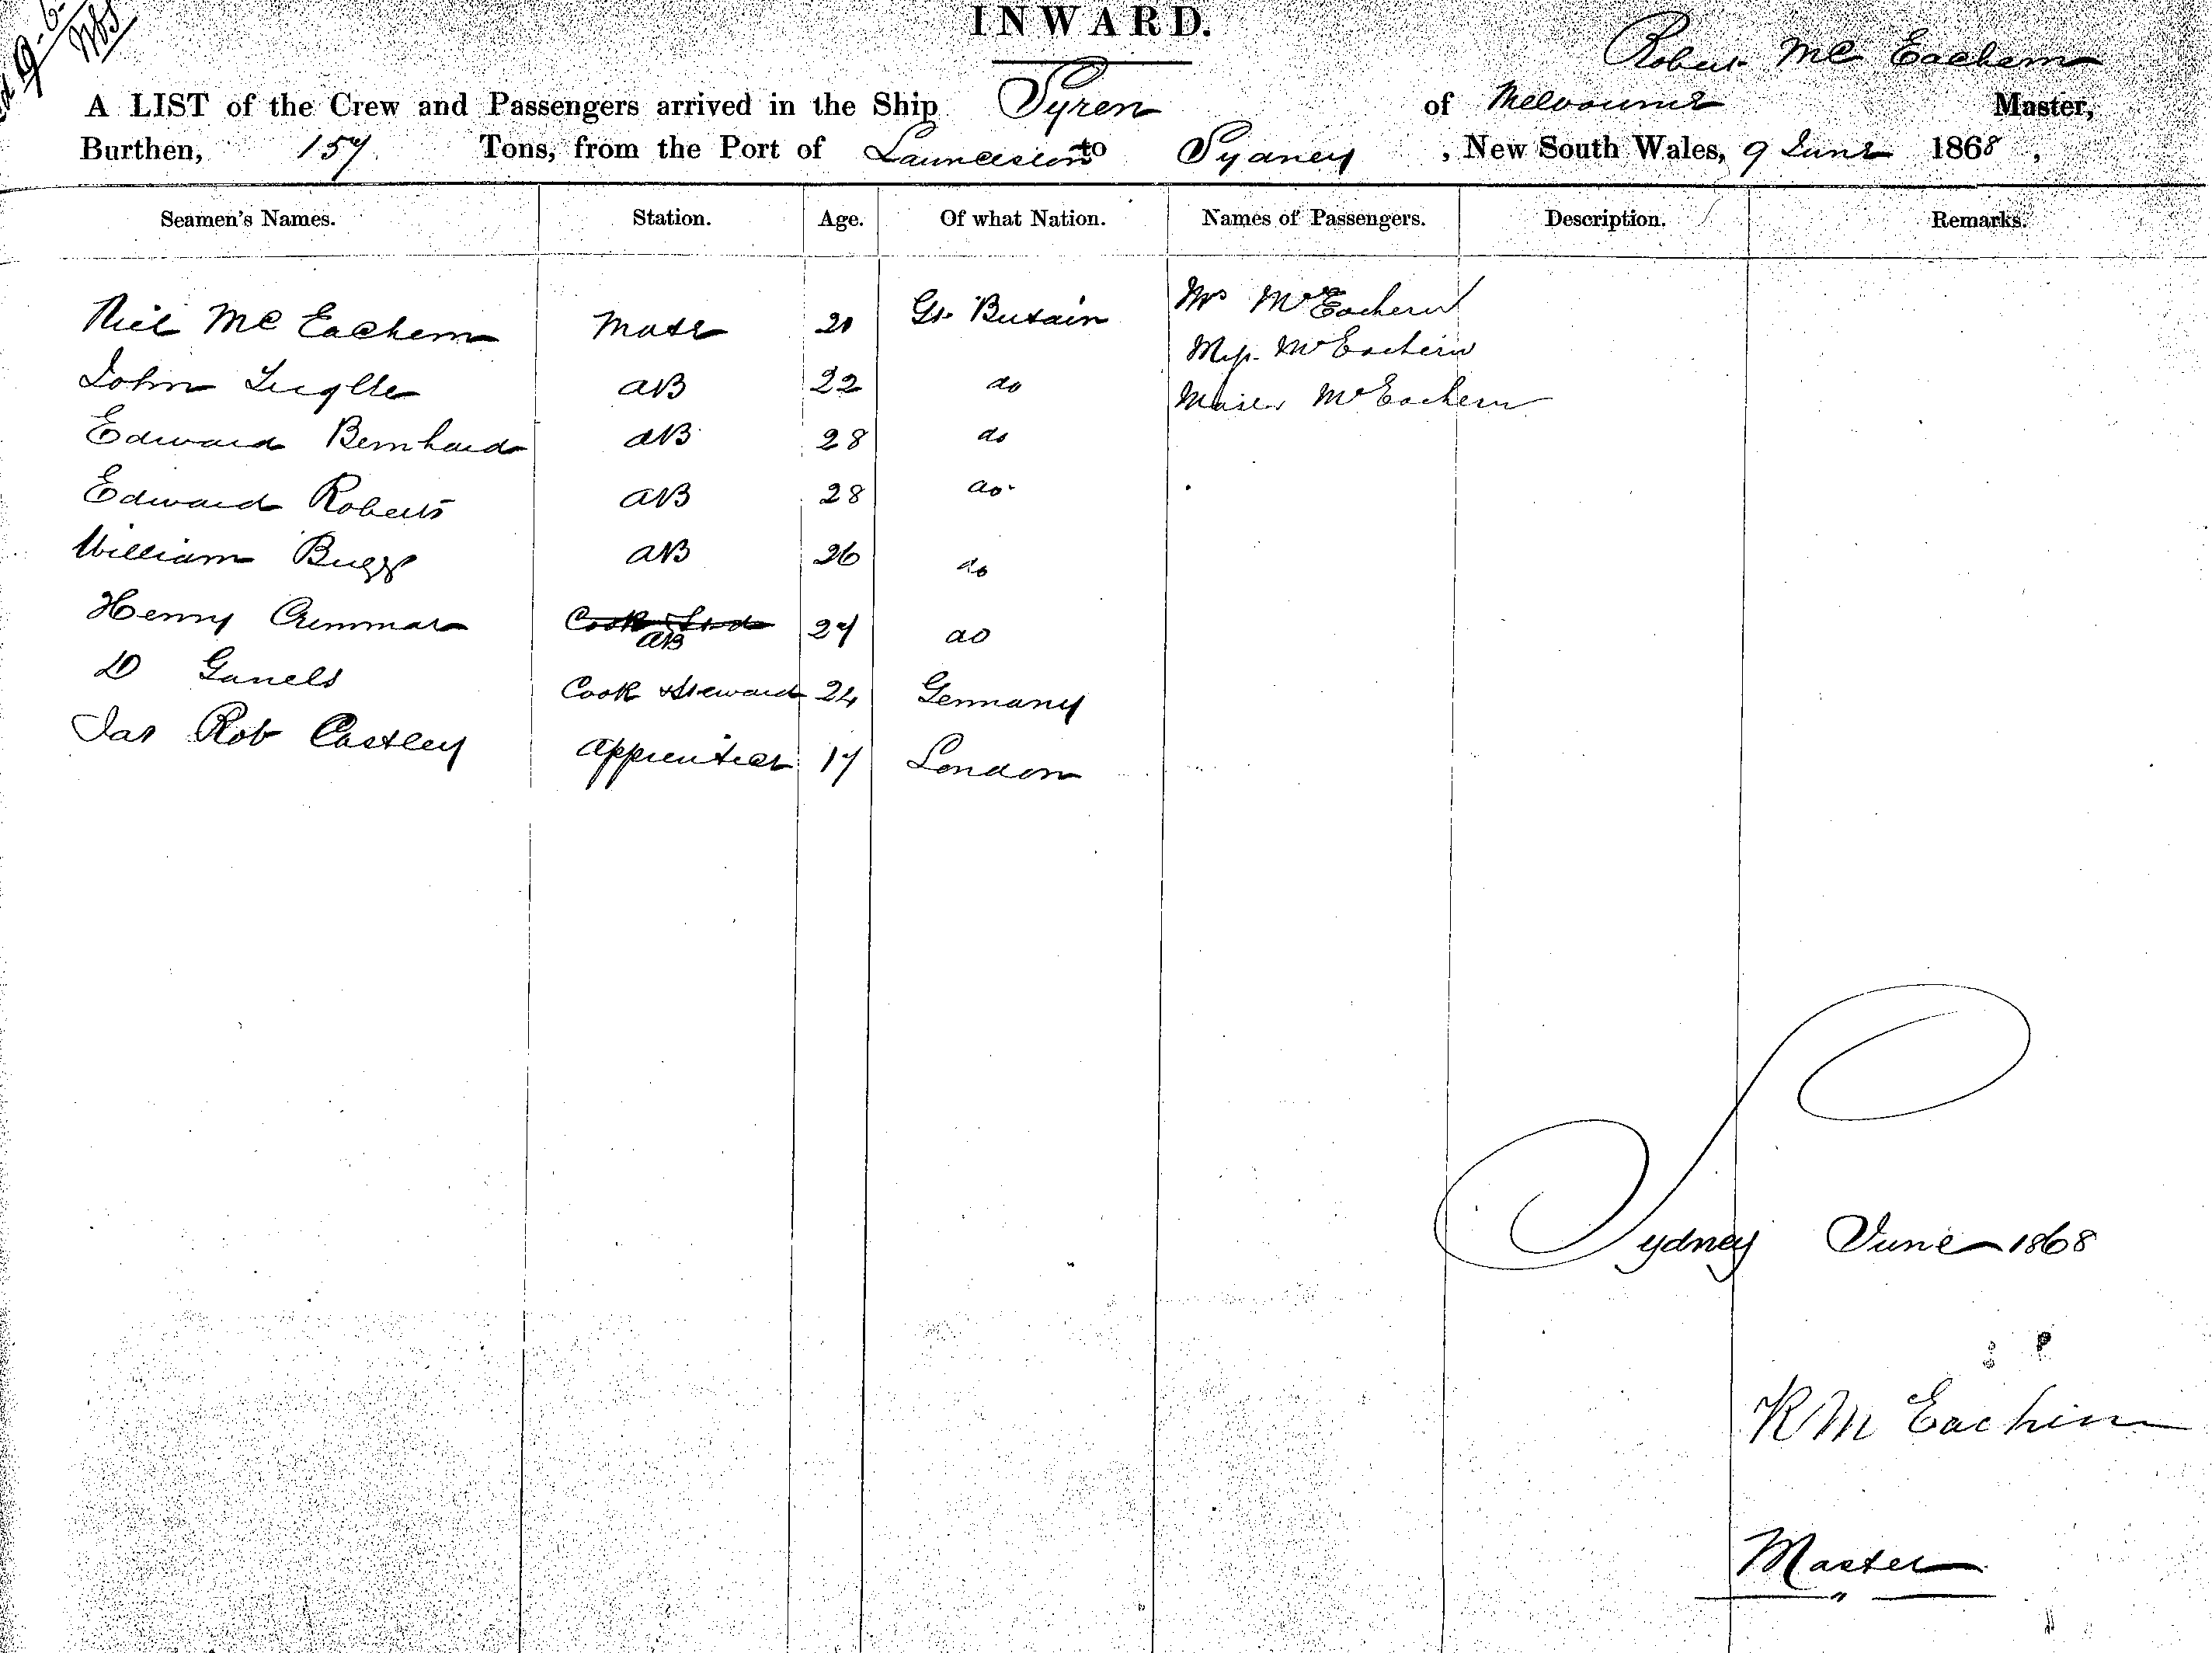 INWARD.
Robert Mc Eachern
A LIST of the Crew and Passengers arrived in the Ship Syren of Melbourne Master,
Burthen, 157 Tons, from the Port of Launceston to Sydney, New South Wales, 9 June 1868,
Seamen's Names. Station. Age. Of what Nation. Names of Passengers. Description. Remarks.
Niel Mc Eachern Mate 20 Gt. Britain Mrs McEachern
Miss McEachern
John AB 22 do
Master McEachern
Edward Bernhard AB 28 do
Edward Roberts AB 28 do
William Bugg AB 26 do
Henry Cook & Std AB 27 do
D Cook & Steward 24 Germany
Jas Rob Castley Apprentice 17 London
Sydney June 1868
R M Eachern
Master